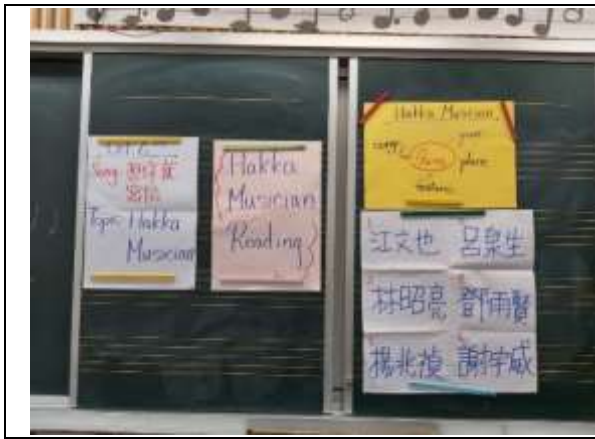 Song
Topic: Hakka
Musician
Hakka
Musician
Reading
Hakka Musician
song
year
place
江文也 呂泉生
林昭亮 鄧雨賢
楊兆禎 謝宇威